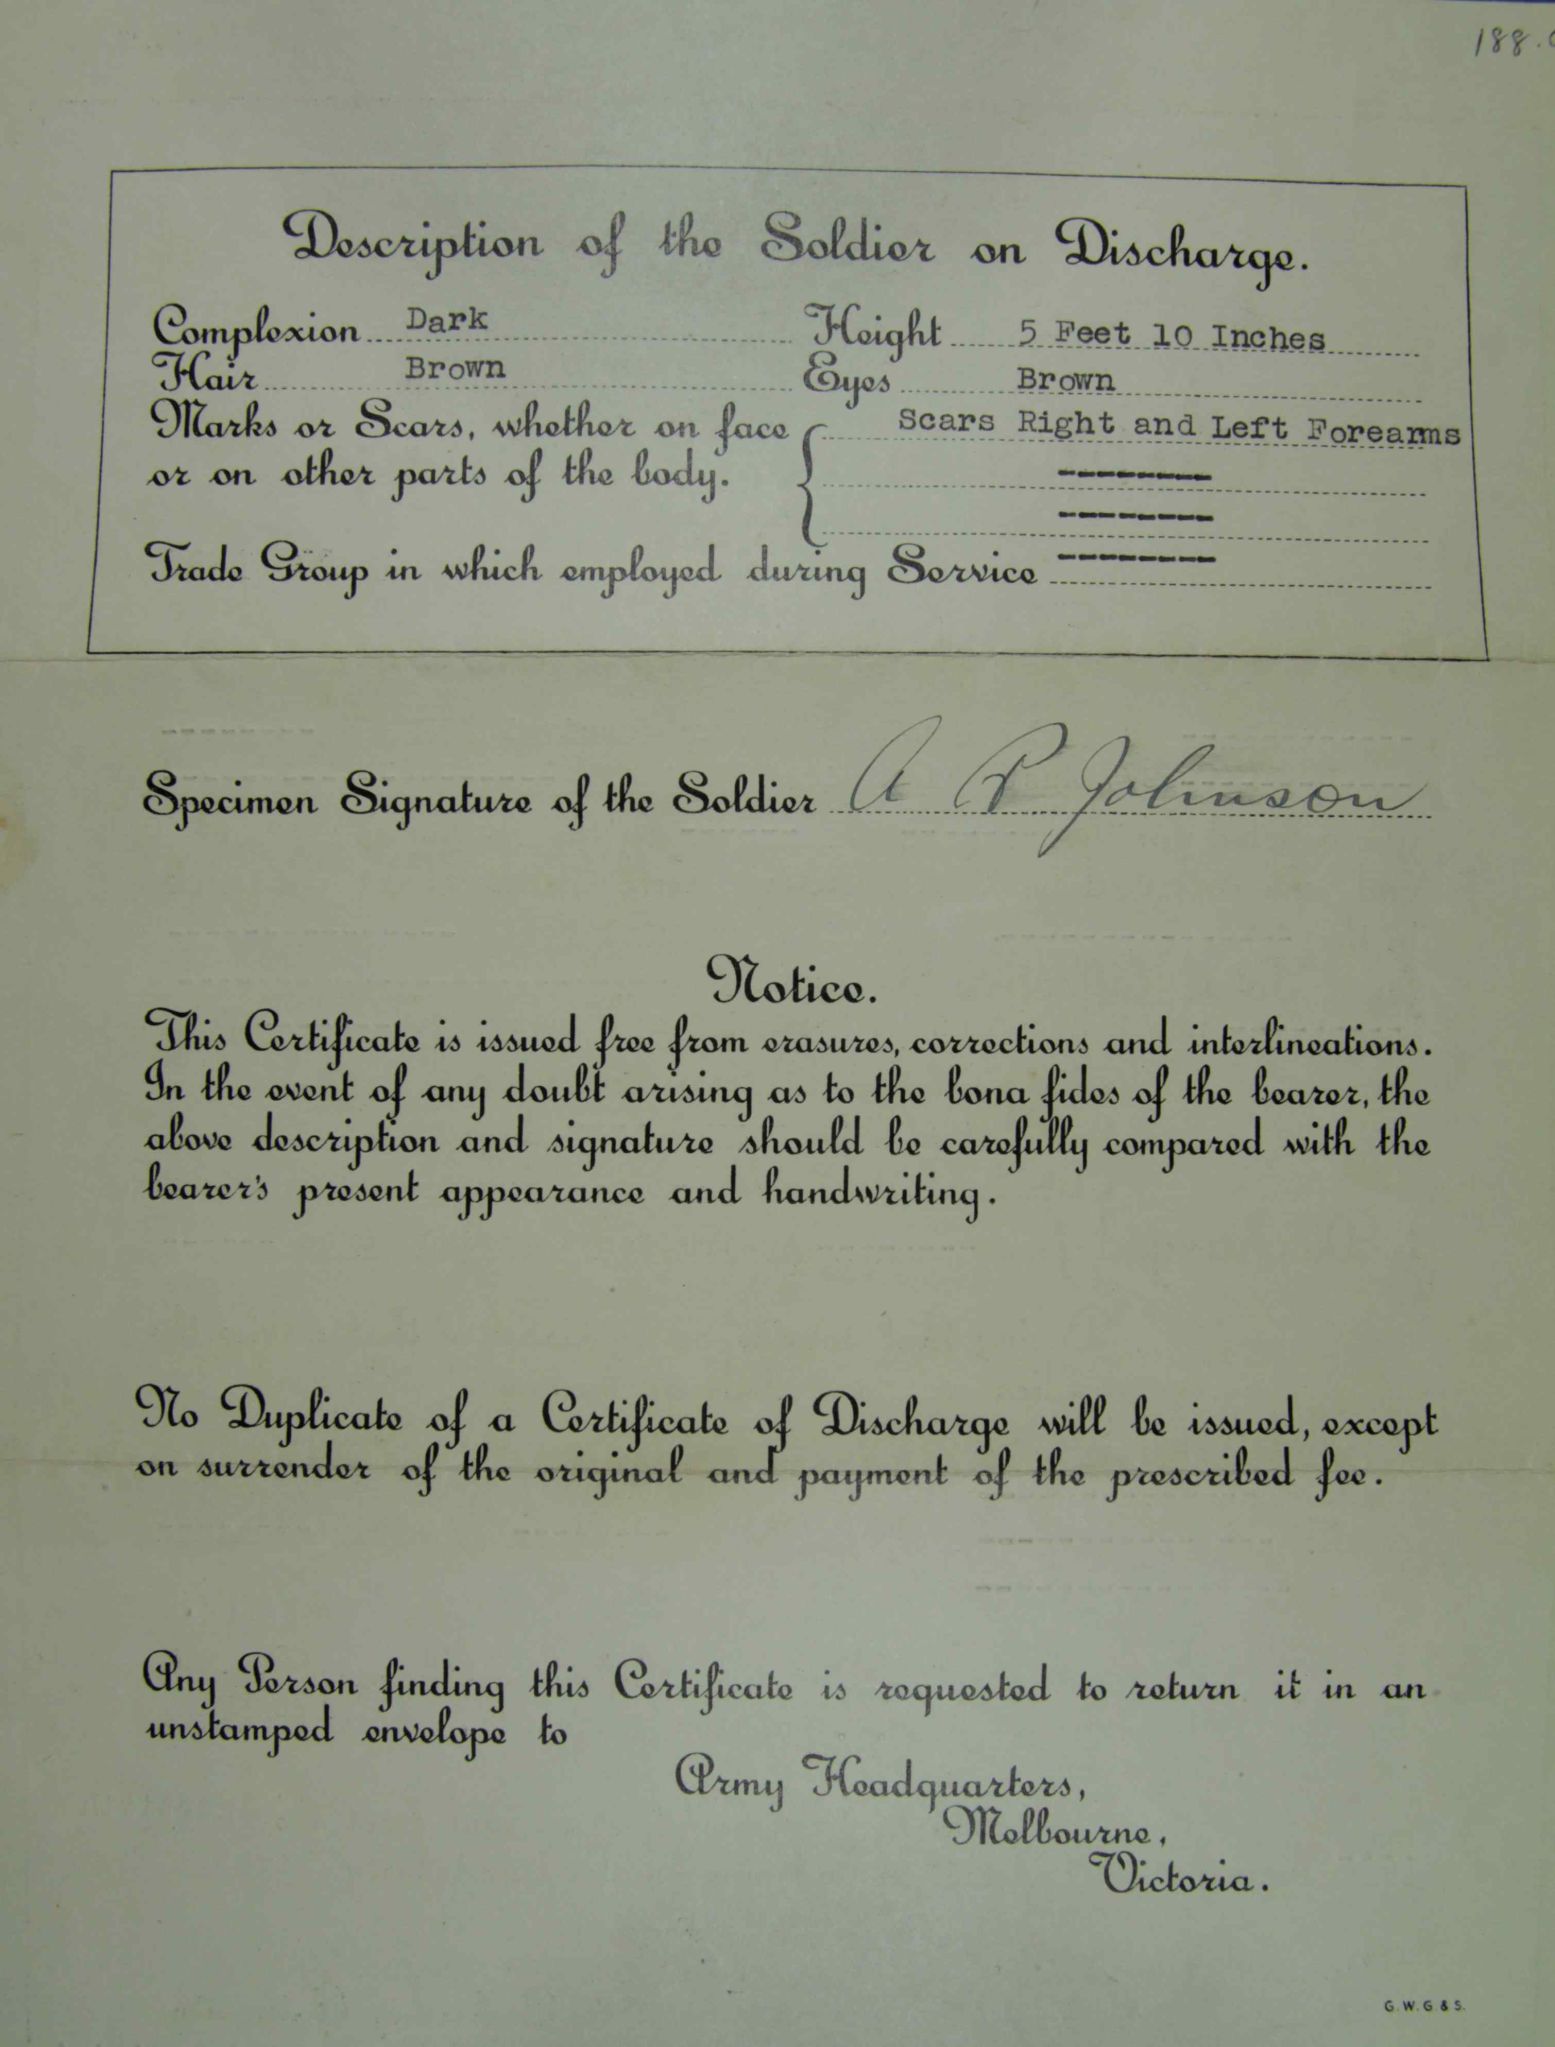 188.
Description of the Soldier on Discharge.
Complexion Dark Height 5 Feet 10 Inches
Hair Brown Eyes Brown
Marks or Scars, whether on face Scars Right and Left Forearms
or on other parts of the body.
Trade Group in which employed during Service
Specimen Signature of the Soldier A P Johnson
Notice.
This Certificate is issued free from erasures, corrections and interlineations.
In the event of any doubt arising as to the bona fides of the bearer, the
above description and signature should be carefully compared with the
bearer's present appearance and handwriting.
No Duplicate of a Certificate of Discharge will be issued, except
on surrender of the original and payment of the prescribed fee.
Any Person finding this Certificate is requested to return it in an
unstamped envelope to
Army Headquarters,
Melbourne,
Victoria.
G. W. G & S.